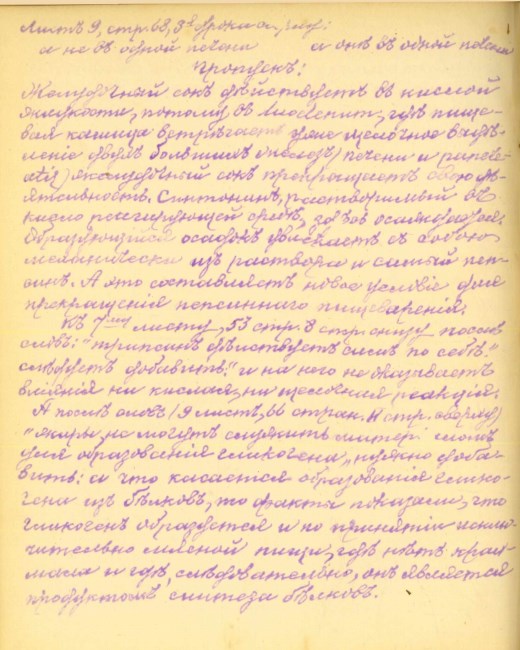 Листъ 9, стр. 68, 3я строка
а не въ одной печени     а онъ въ одной печени
Пропускъ:
Желудочный сокъ дѣйствуетъ въ кислой
жидкости, потому въ duodenum, гдѣ пище-
вая кашица встрѣчаетъ уже щелочное выдѣ-
леніе двухъ большихъ железъ (печени и pancre-
atis) желудочный сокъ прекращаетъ свою дѣ-
ятельность. Синтонинъ, растворимый въ
кисло реагирующей средѣ, здѣсь осаждается.
Образующійся осадокъ увлекаетъ съ собою
механически изъ раствора и самый пеп-
синъ. А это составляетъ новое условіе для
прекращенія пепсиннаго пищеваренія.
Къ 7му листу, 53 стр. 8 стр. снизу послѣ
словъ: "трипсинъ дѣйствуетъ самъ по себѣ"
слѣдуетъ добавить: "и на него не оказываетъ
вліянія ни кислая, ни щелочная реакція.
А послѣ словъ (9 листъ, 66 стран. 11 стр. сверху)
"жиры не могутъ служить матеріаломъ
для образованія гликогена", нужно доба-
вить: а что касается образованія глико-
гена изъ бѣлковъ, то факты показали, что
гликогенъ образуется и по принятіи исклю-
чительно мясной пищи, гдѣ нѣтъ крах-
мала и гдѣ, слѣдовательно, онъ является
продуктомъ синтеза бѣлковъ.